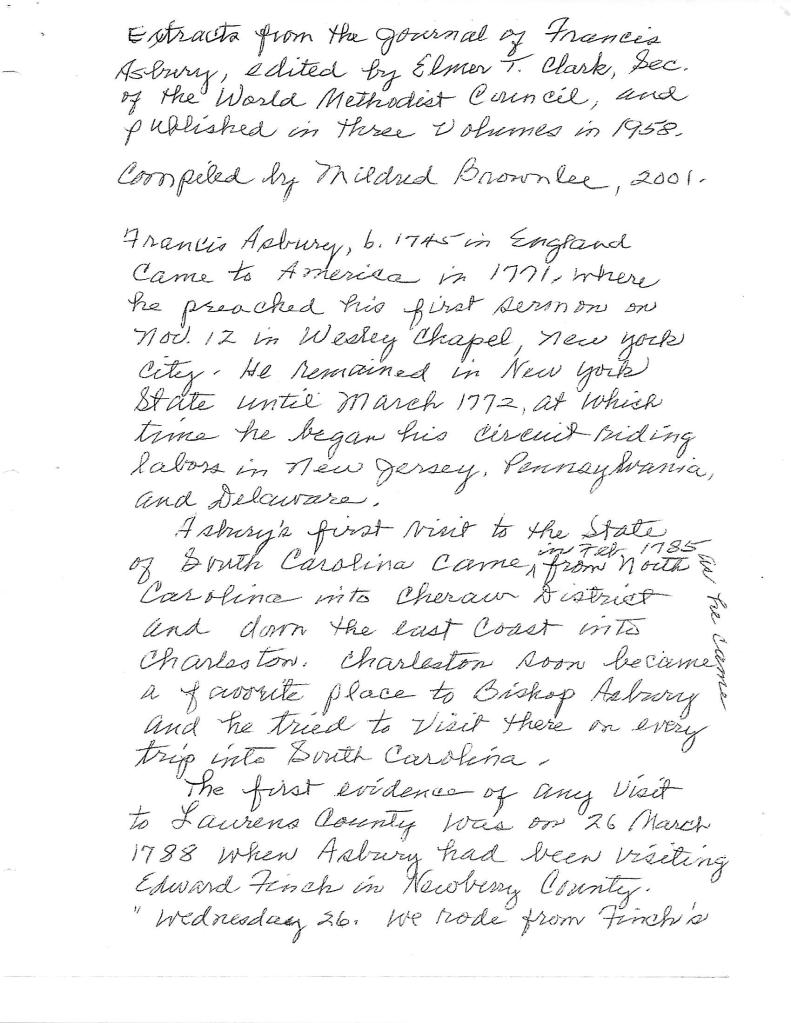 Extracts from the Journal of Francis
Asbury, edited by Elmer T. Clark, Sec.
of the World Methodist Council, and
published in three Volumes in 1958.
Compiled by Mildred Brownlee, 2001.
Francis Asbury, b. 1745 in England
Came to America in 1771, where
he preached his first sermon on
Nov. 12 in Wesley Chapel, New York
City. He remained in New York
State until March 1772, at which
time he began his circuit riding
labors in New Jersey, Pennsylvania,
and Delaware.
Asbury's first visit to the State
in Feb. 1785
of South Carolina came, from North
as he came
Carolina into Cheraw District
and down the east Coast into
Charleston. Charleston soon became
a favorite place to Bishop Asbury
and he tried to visit there on every
trip into South Carolina.
The first evidence of any visit
to Laurens County was on 26 March
1788 when Asbury had been visiting
Edward Finch in Newberry County.
" Wednesday 26. We rode from Finch's